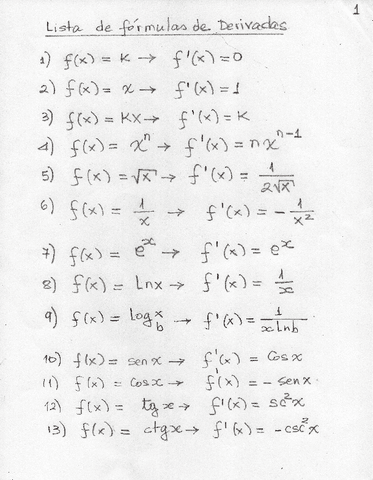 1
Lista de fórmulas de Derivadas
1) f(x) = K → f'(x) = 0
2) f(x) = x → f'(x) = 1
3) f(x) = Kx → f'(x) = K
4) f(x) = x^n → f'(x) = n x^{n-1}
5) f(x) = √x → f'(x) = 1/(2√x)
6) f(x) = 1/x → f'(x) = - 1/x²
7) f(x) = e^x → f'(x) = e^x
8) f(x) = Lnx → f'(x) = 1/x
9) f(x) = log_b^x → f'(x) = 1/(x Lnb)
10) f(x) = sen x → f'(x) = Cos x
11) f(x) = Cos x → f'(x) = - sen x
12) f(x) = tg x → f'(x) = sc²x
13) f(x) = ctg x → f'(x) = -csc²x